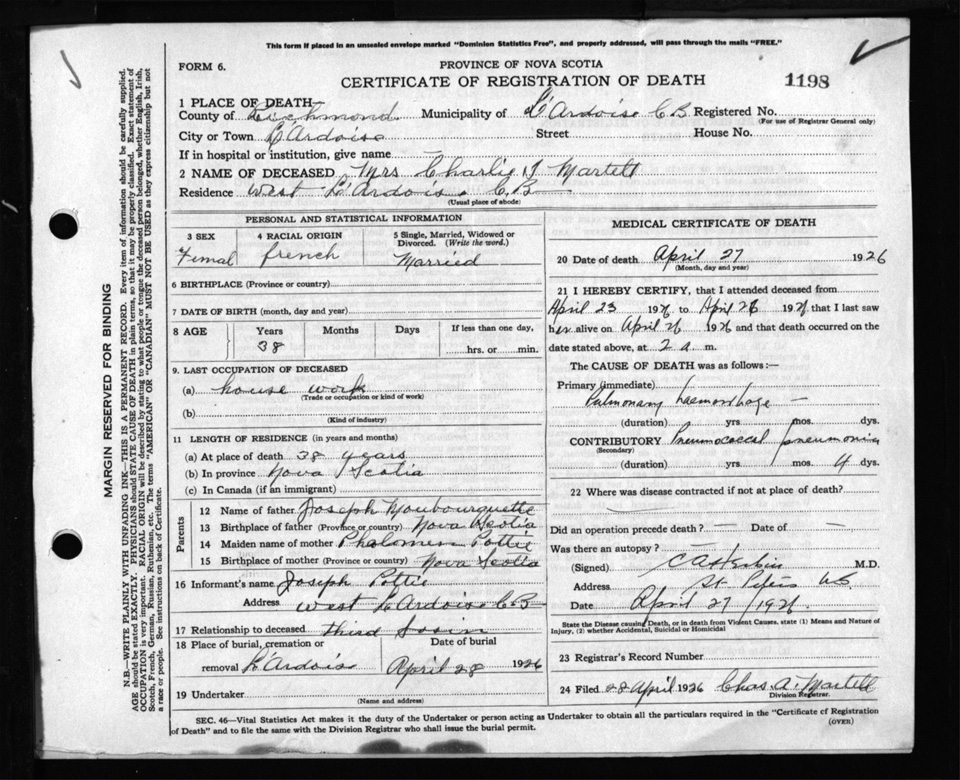 This form if placed in an unsealed envelope marked "Dominion Statistics Free", and properly addressed, will pass through the mails "FREE."
FORM 6.
PROVINCE OF NOVA SCOTIA
CERTIFICATE OF REGISTRATION OF DEATH
1198
1 PLACE OF DEATH—
County of Richmond Municipality of L'Ardoise C B Registered No.
(For use of Registrar General only)
City or Town L'Ardoise Street House No.
If in hospital or institution, give name
2 NAME OF DECEASED Mrs Charlie J Martell
Residence West L'Ardoise C B
(Usual place of abode)
PERSONAL AND STATISTICAL INFORMATION
3 SEX
Femal
4 RACIAL ORIGIN
french
5 Single, Married, Widowed or Divorced. (Write the word.)
Married
6 BIRTHPLACE (Province or country)
7 DATE OF BIRTH (month, day and year)
8 AGE Years Months Days If less than one day,
38 hrs. or min.
9. LAST OCCUPATION OF DECEASED
(a) house work
(Trade or occupation or kind of work)
(b)
(Kind of industry)
11 LENGTH OF RESIDENCE (in years and months)
(a) At place of death 38 years
(b) In province Nova Scotia
(c) In Canada (if an immigrant)
Parents
12 Name of father Joseph Moubourquette
13 Birthplace of father (Province or country) Nova Scotia
14 Maiden name of mother Phalomen Pottie
15 Birthplace of mother (Province or country) Nova Scotia
16 Informant's name Joseph Pottie
Address West L'Ardoise C B
17 Relationship to deceased third
18 Place of burial, cremation or removal L'Ardois
Date of burial
April 28 1926
19 Undertaker
(Name and address)
MEDICAL CERTIFICATE OF DEATH
20 Date of death April 27 1926
(Month, day and year)
21 I HEREBY CERTIFY, that I attended deceased from
April 23 1926 to April 26 1926 that I last saw
her alive on April 26 1926 and that death occurred on the
date stated above, at 2 a m.
The CAUSE OF DEATH was as follows:—
Primary (immediate)
Pulmonary haemorrhage —
(duration) yrs mos. dys.
CONTRIBUTORY Pneumococcal pneumonia
(Secondary)
(duration) yrs mos. 4 dys.
22 Where was disease contracted if not at place of death?
Did an operation precede death? — Date of —
Was there an autopsy?
(Signed) M.D.
Address St. Peters NS
Date April 27 / 1926
State the Disease causing Death, or in death from Violent Causes, state (1) Means and Nature of
Injury, (2) whether Accidental, Suicidal or Homicidal
23 Registrar's Record Number
24 Filed 28 April 1926 Chas. A. Martell
Division Registrar.
SEC. 46—Vital Statistics Act makes it the duty of the Undertaker or person acting as Undertaker to obtain all the particulars required in the "Certificate of Registration
of Death" and to file the same with the Division Registrar who shall issue the burial permit.
(OVER)
MARGIN RESERVED FOR BINDING
N.B.—WRITE PLAINLY WITH UNFADING INK—THIS IS A PERMANENT RECORD. Every item of information should be carefully supplied.
AGE should be stated EXACTLY. PHYSICIANS should STATE CAUSE OF DEATH in plain terms, so that it may be properly classified. Exact statement of
OCCUPATION is very important. RACIAL ORIGIN will be described by stating to what people or tongue the deceased person belonged, whether English, Irish,
Scotch, French, German, Russian, Ruthenian, etc. The terms "AMERICAN" OR "CANADIAN" MUST NOT BE USED as they express citizenship but not
a race or people. See instructions on back of Certificate.